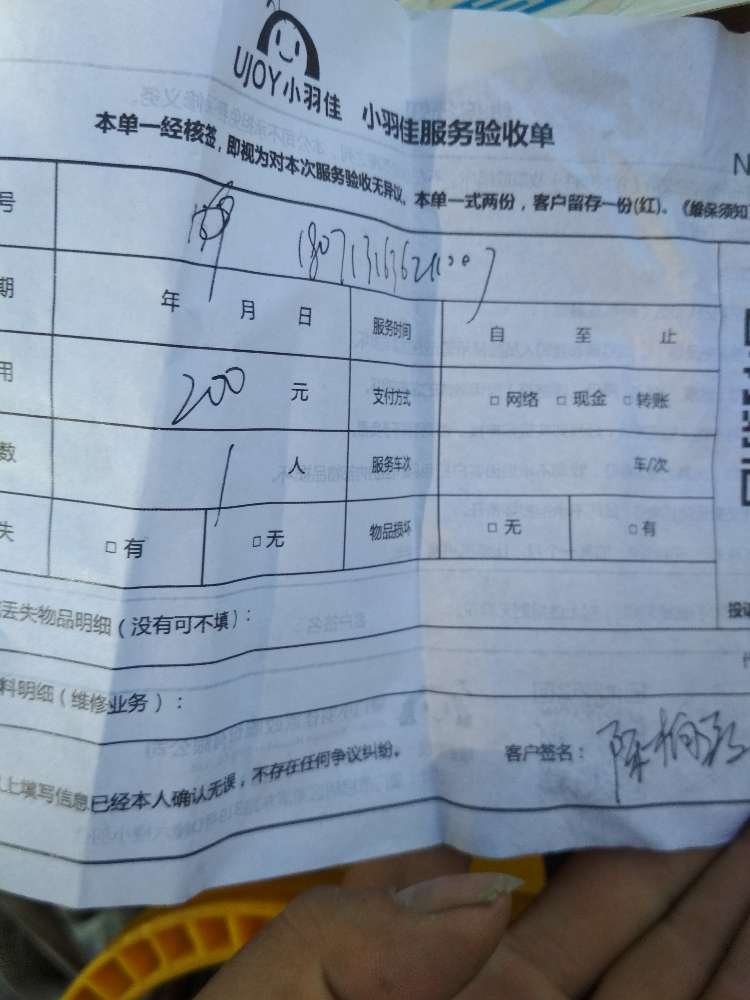 UJOY小羽佳 小羽佳服务验收单
本单一经核签，即视为对本次服务验收无异议。本单一式两份，客户留存一份(红)。《维保须知
N
号
期 年 月 日 服务时间 自 至 止
用 200 元 支付方式 □ 网络 □ 现金 □ 转账
数 1 人 服务车次 车/次
失 □ 有 □ 无 物品损坏 □ 无 □ 有
丢失物品明细（没有可不填）：
投诉
料明细（维修业务）：
上填写信息已经本人确认无误，不存在任何争议纠纷。 客户签名：